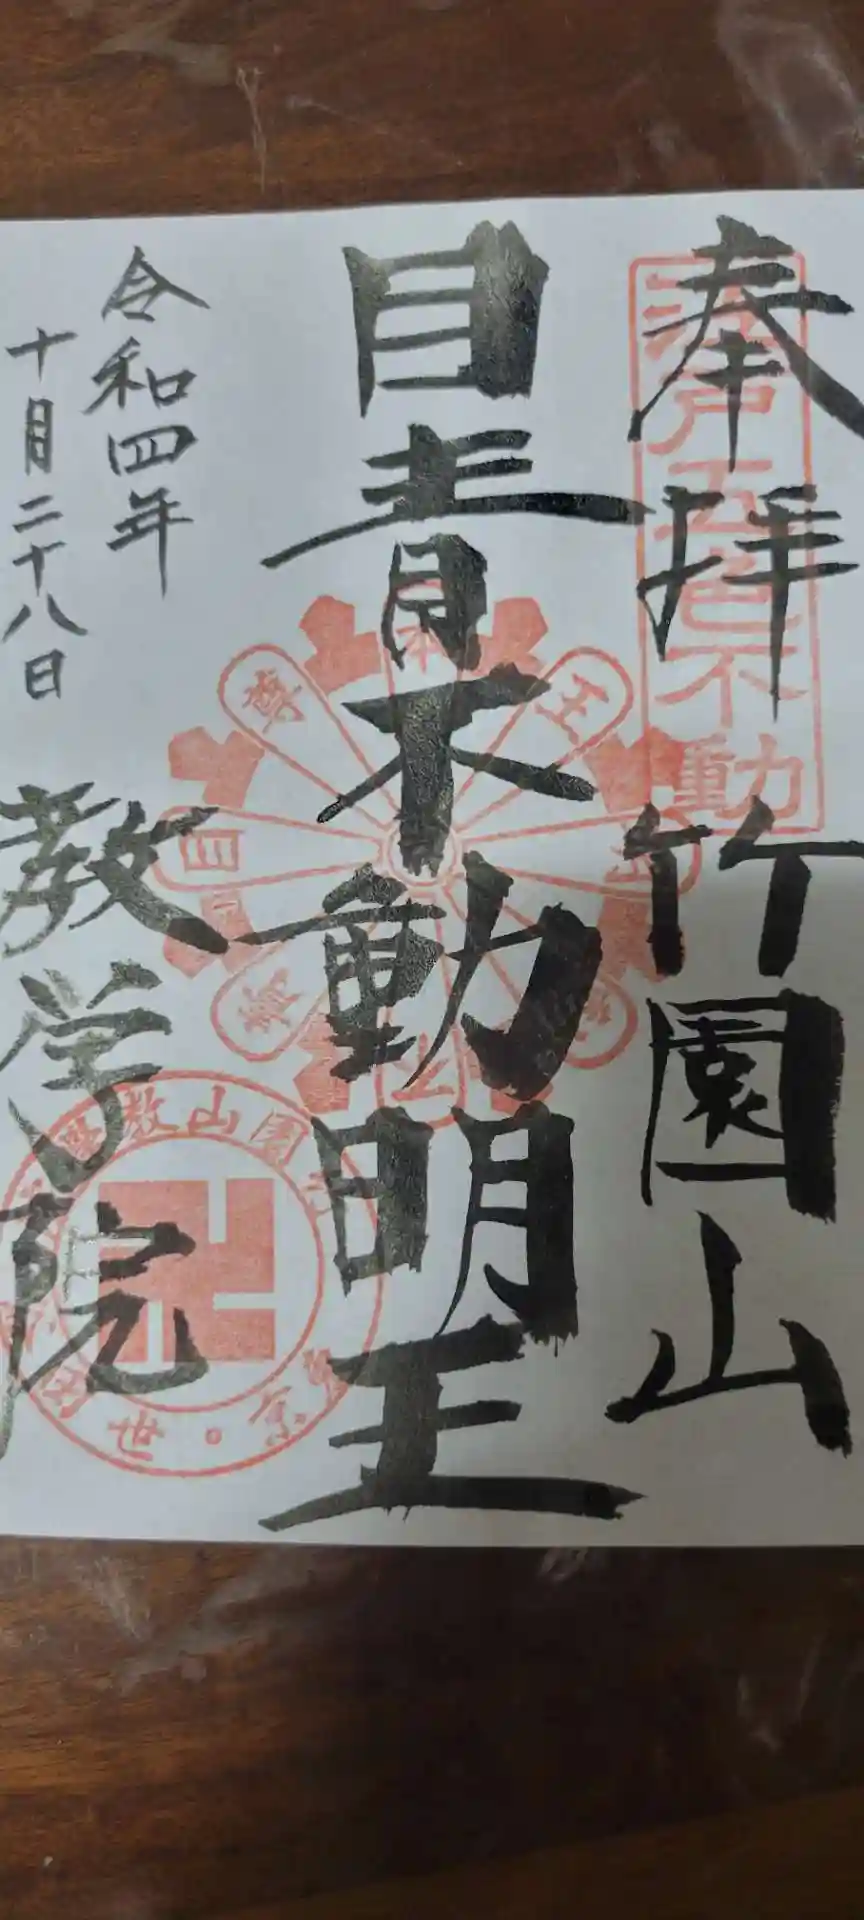 奉拝
竹園山
江戸五色不動
目青不動明王
令和四年
十月二十八日
教学院